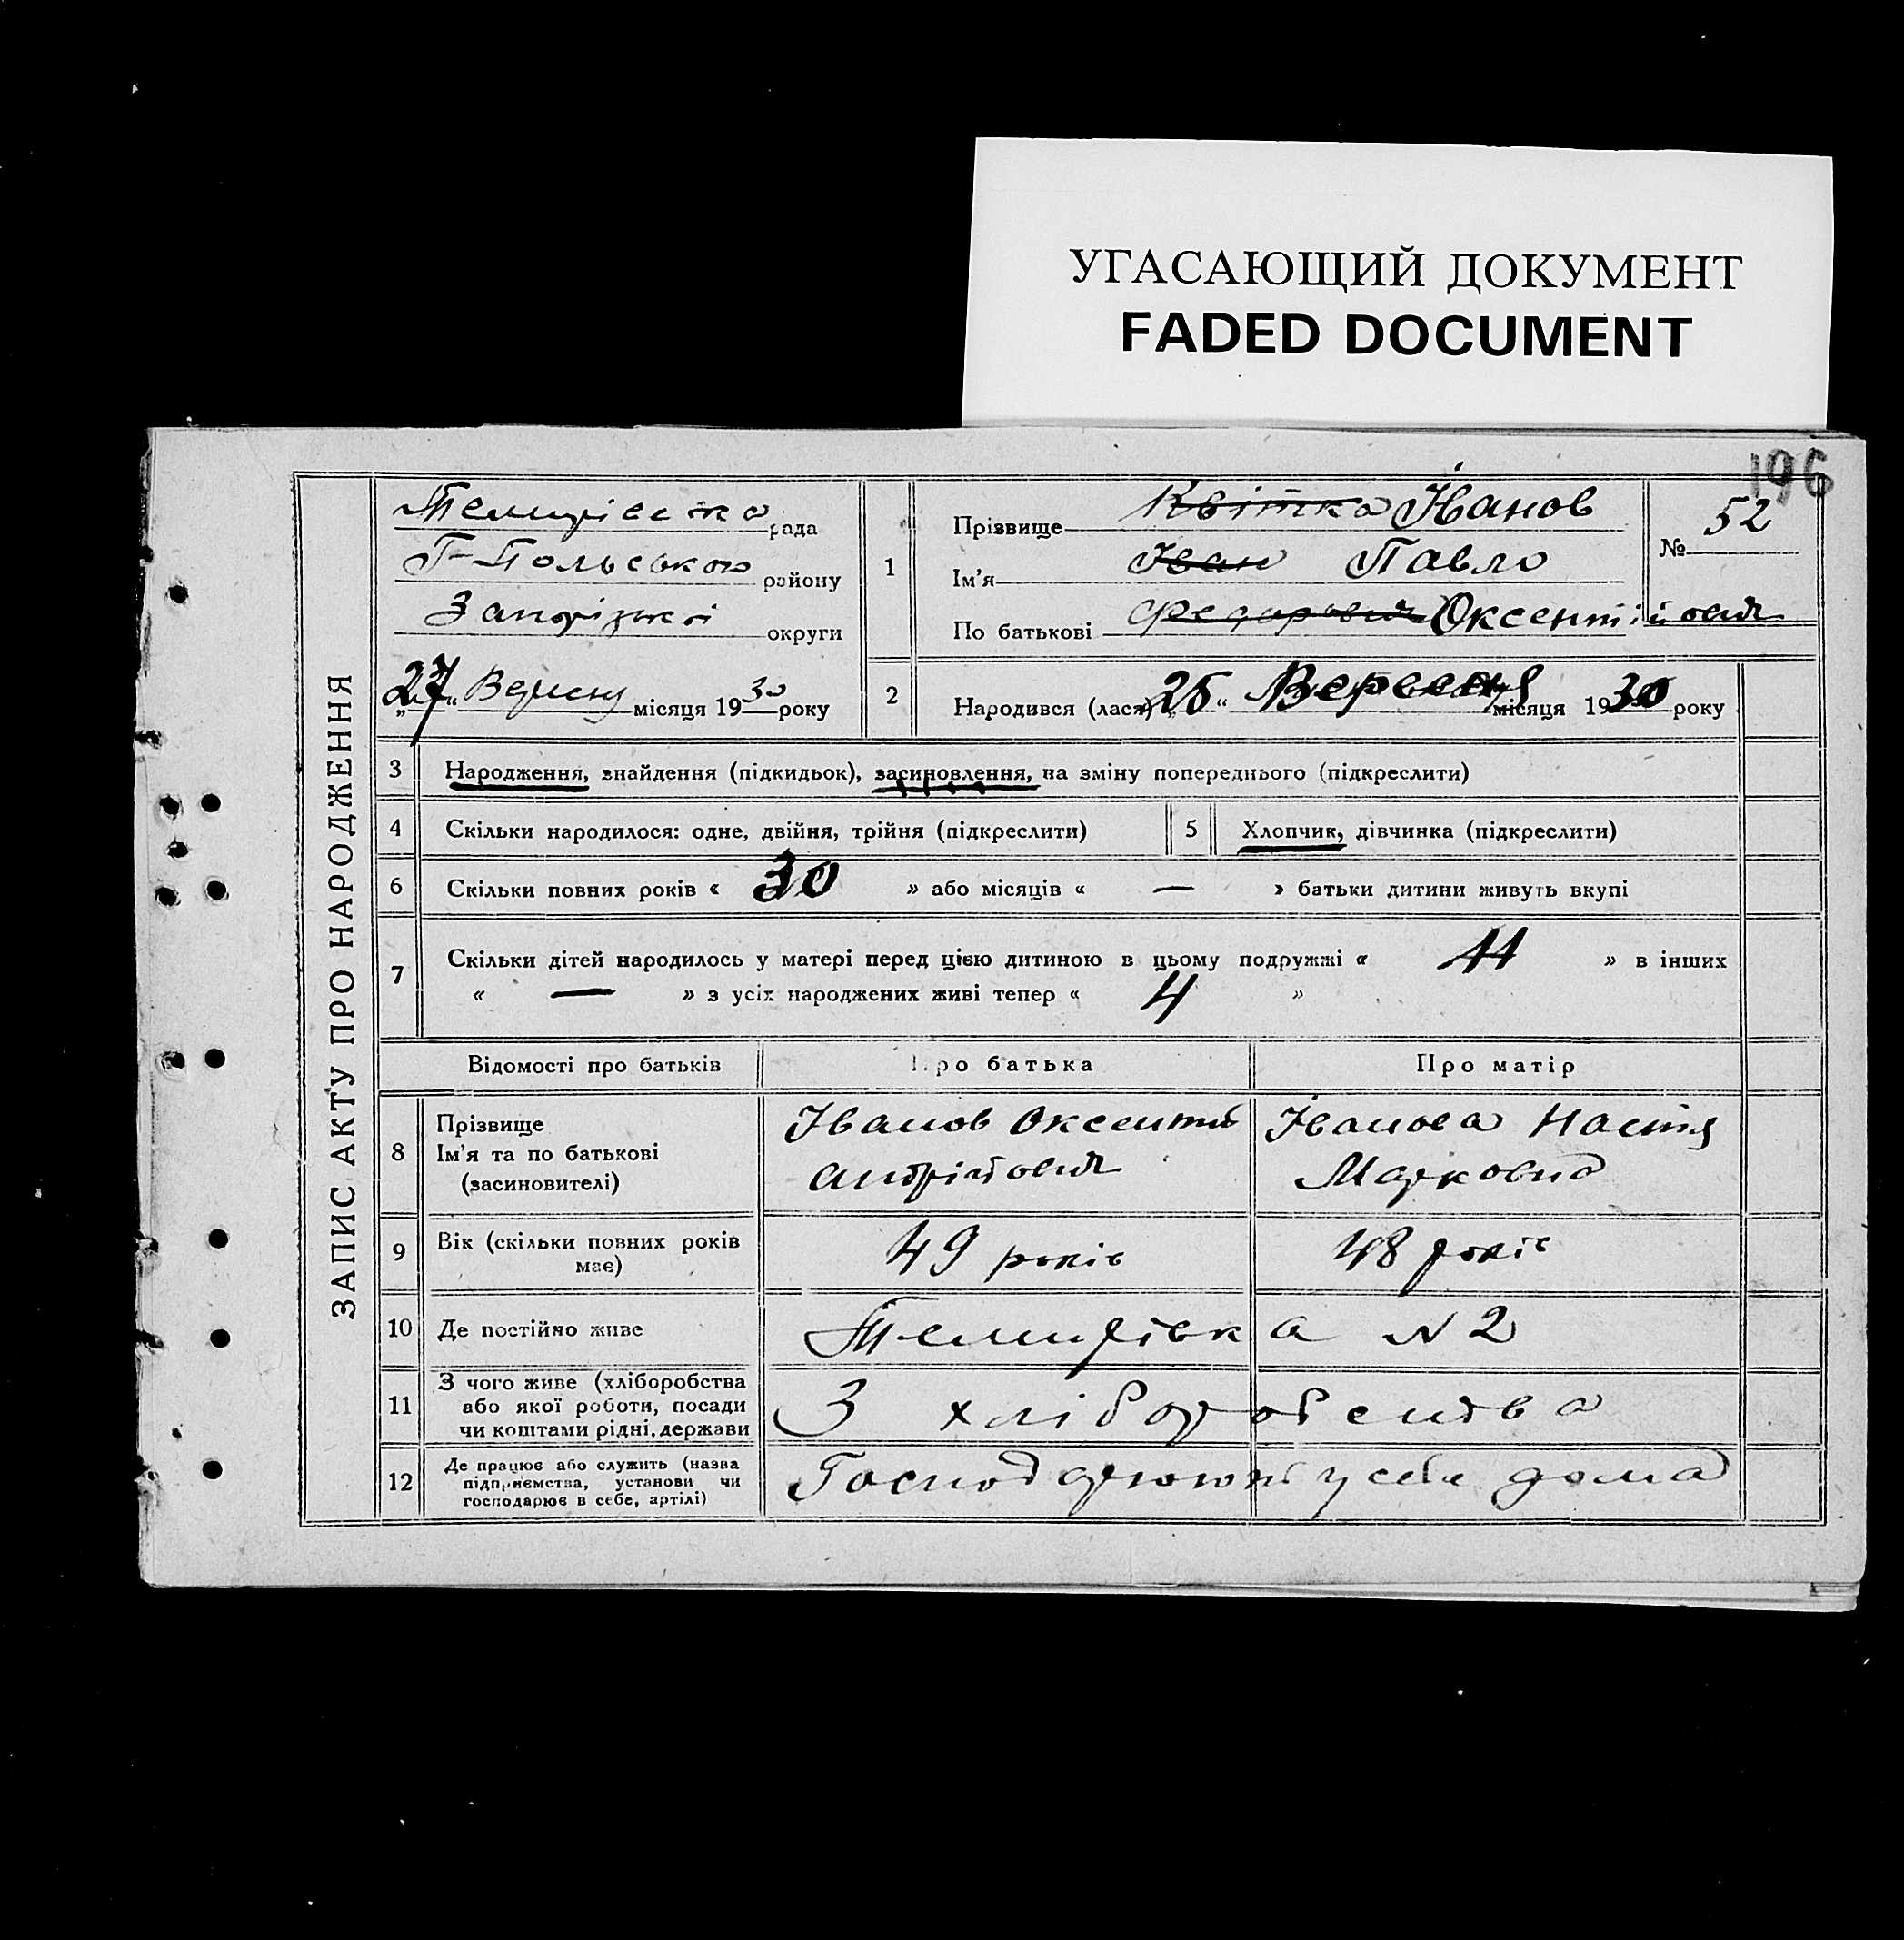 УГАСАЮЩИЙ ДОКУМЕНТ
FADED DOCUMENT
196
ЗАПИС АКТУ ПРО НАРОДЖЕННЯ
Темирівська рада
Г-Польського району
Запоріжжі округи
„27“ Вересня місяця 1930 року
1
Прізвище Квітка Іванов
Ім'я Іван Павло
По батькові Федорович Оксентійович
№ 52
2
Народився (лася) „25“ Вересня місяця 1930 року
3 Народження, знайдення (підкидьок), засиновлення, на зміну попереднього (підкреслити)
4 Скільки народилося: одне, двійня, трійня (підкреслити) 5 Хлопчик, дівчинка (підкреслити)
6 Скільки повних років « 30 » або місяців « — » батьки дитини живуть вкупі
7 Скільки дітей народилось у матері перед цією дитиною в цьому подружжі « 11 » в інших
« — » з усіх народжених живі тепер « 4 »
Відомості про батьків Про батька Про матір
8 Прізвище
Ім'я та по батькові
(засиновителі)
Іванов Оксентий
Андрійович
Іванова Настя
Марковна
9 Вік (скільки повних років
має)
49 років 48 років
10 Де постійно живе Темирівка N 2
11 З чого живе (хліборобства
або якої роботи, посади
чи коштами рідні, держави
З хліборобства
12 Де працює або служить (назва
підприємства, установи чи
господарює в себе, артілі)
у себе дома